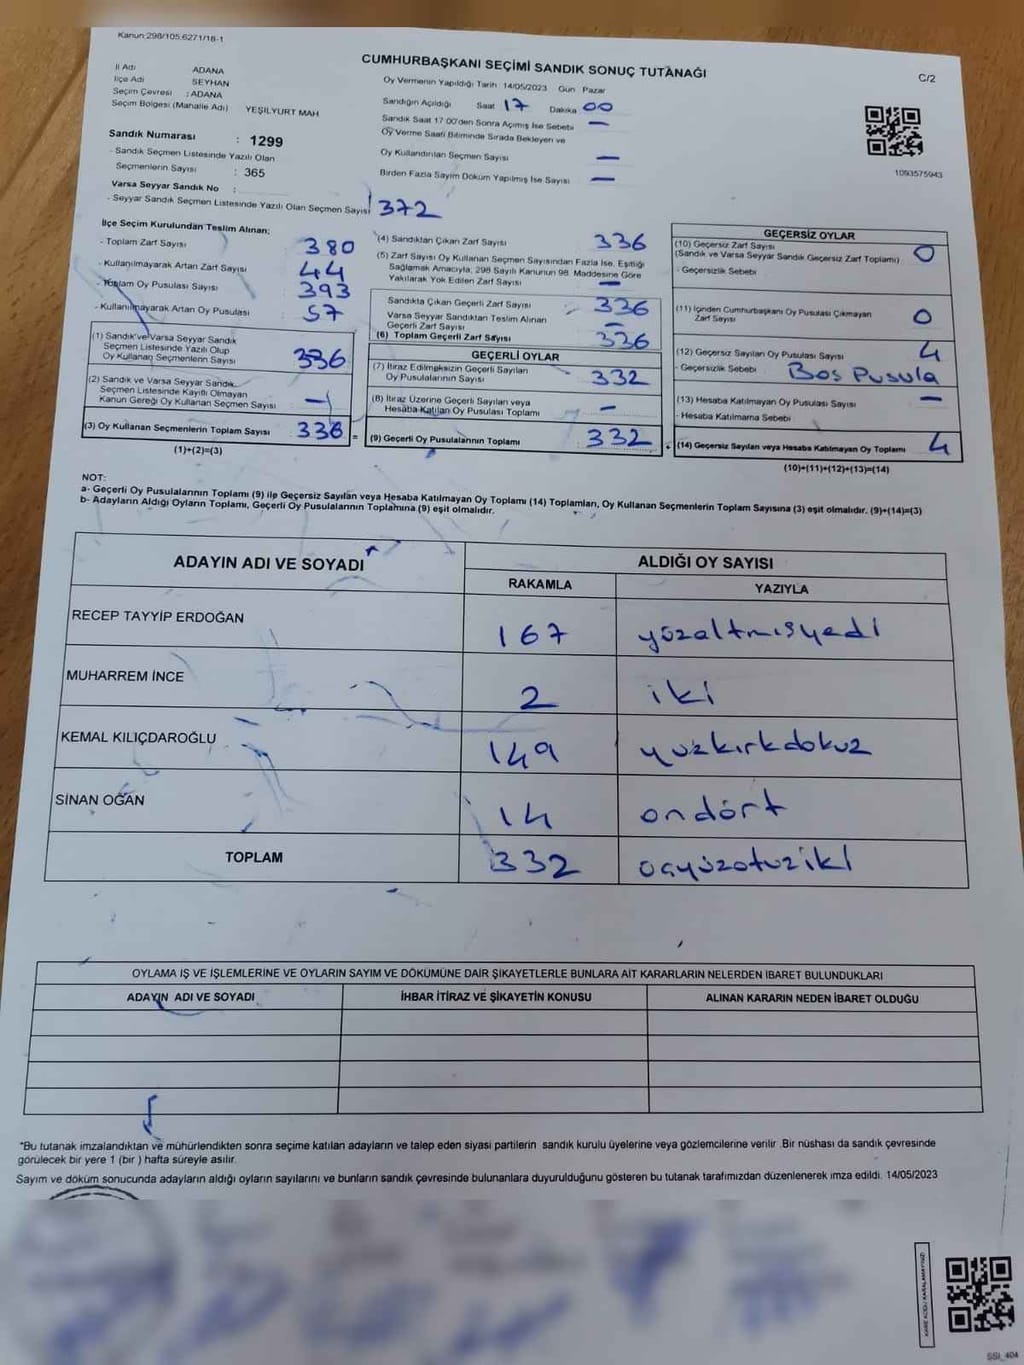 Kanun:298/105,6271/18-1
CUMHURBAŞKANI SEÇİMİ SANDIK SONUÇ TUTANAĞI
C/2
İl Adı ADANA
İlçe Adı SEYHAN
Seçim Çevresi : ADANA
Seçim Bölgesi (Mahalle Adı) YEŞİLYURT MAH
Sandık Numarası : 1299
- Sandık Seçmen Listesinde Yazılı Olan
Seçmenlerin Sayısı : 365
Varsa Seyyar Sandık No :
- Seyyar Sandık Seçmen Listesinde Yazılı Olan Seçmen Sayısı 372
Oy Vermenin Yapıldığı Tarih 14/05/2023 Gün Pazar
Sandığın Açıldığı Saat 17 Dakika 00
Sandık Saat 17:00'den Sonra Açımış İse Sebebi —
Oy Verme Saati Bitiminde Sırada Bekleyen ve
Oy Kullandırılan Seçmen Sayısı —
Birden Fazla Sayım Döküm Yapılmış İse Sayısı —
1093575943
İlçe Seçim Kurulundan Teslim Alınan;
- Toplam Zarf Sayısı 380
- Kullanılmayarak Artan Zarf Sayısı 44
- Toplam Oy Pusulası Sayısı 393
- Kullanılmayarak Artan Oy Pusulası 57
(1) Sandık ve Varsa Seyyar Sandık
Seçmen Listesinde Yazılı Olup
Oy Kullanan Seçmenlerin Sayısı 336
(2) Sandık ve Varsa Seyyar Sandık
Seçmen Listesinde Kayıtlı Olmayan
Kanun Gereği Oy Kullanan Seçmen Sayısı —
(3) Oy Kullanan Seçmenlerin Toplam Sayısı 336 =
(1)+(2)=(3)
(4) Sandıktan Çıkan Zarf Sayısı 336
(5) Zarf Sayısı Oy Kullanan Seçmen Sayısından Fazla İse, Eşitliği
Sağlamak Amacıyla; 298 Sayılı Kanunun 98. Maddesine Göre
Yakılarak Yok Edilen Zarf Sayısı —
Sandıkta Çıkan Geçerli Zarf Sayısı 336
Varsa Seyyar Sandıktan Teslim Alınan
Geçerli Zarf Sayısı —
(6) Toplam Geçerli Zarf Sayısı 336
GEÇERLİ OYLAR
(7) İtiraz Edilmeksizin Geçerli Sayılan
Oy Pusulalarının Sayısı 332
(8) İtiraz Üzerine Geçerli Sayılan veya
Hesaba Katılan Oy Pusulası Toplamı —
(9) Geçerli Oy Pusulalarının Toplamı 332 +
GEÇERSİZ OYLAR
(10) Geçersiz Zarf Sayısı 0
(Sandık ve Varsa Seyyar Sandık Geçersiz Zarf Toplamı)
- Geçersizlik Sebebi
(11) İçinden Cumhurbaşkanı Oy Pusulası Çıkmayan
Zarf Sayısı 0
(12) Geçersiz Sayılan Oy Pusulası Sayısı 4
- Geçersizlik Sebebi Boş Pusula
(13) Hesaba Katılmayan Oy Pusulası Sayısı —
- Hesaba Katılmama Sebebi
(14) Geçersiz Sayılan veya Hesaba Katılmayan Oy Toplamı 4
(10)+(11)+(12)+(13)=(14)
NOT:
a- Geçerli Oy Pusulalarının Toplamı (9) ile Geçersiz Sayılan veya Hesaba Katılmayan Oy Toplamı (14) Toplamları, Oy Kullanan Seçmenlerin Toplam Sayısına (3) eşit olmalıdır. (9)+(14)=(3)
b- Adayların Aldığı Oyların Toplamı, Geçerli Oy Pusulalarının Toplamına (9) eşit olmalıdır.
ADAYIN ADI VE SOYADI ALDIĞI OY SAYISI
RAKAMLA YAZIYLA
RECEP TAYYİP ERDOĞAN 167 yüzaltmışyedi
MUHARREM İNCE 2 iki
KEMAL KILIÇDAROĞLU 149 yüzkırkdokuz
SİNAN OĞAN 14 ondört
TOPLAM 332 üçyüzotuziki
OYLAMA İŞ VE İŞLEMLERİNE VE OYLARIN SAYIM VE DÖKÜMÜNE DAİR ŞİKAYETLERLE BUNLARA AİT KARARLARIN NELERDEN İBARET BULUNDUKLARI
ADAYIN ADI VE SOYADI İHBAR İTİRAZ VE ŞİKAYETİN KONUSU ALINAN KARARIN NEDEN İBARET OLDUĞU
*Bu tutanak imzalandıktan ve mühürlendikten sonra seçime katılan adayların ve talep eden siyasi partilerin sandık kurulu üyelerine veya gözlemcilerine verilir .Bir nüshası da sandık çevresinde
görülecek bir yere 1 (bir ) hafta süreyle asılır.
Sayım ve döküm sonucunda adayların aldığı oyların sayılarını ve bunların sandık çevresinde bulunanlara duyurulduğunu gösteren bu tutanak tarafımızdan düzenlenerek imza edildi. 14/05/2023
KARE KODU KARALAMAYINIZ!
SSI_404